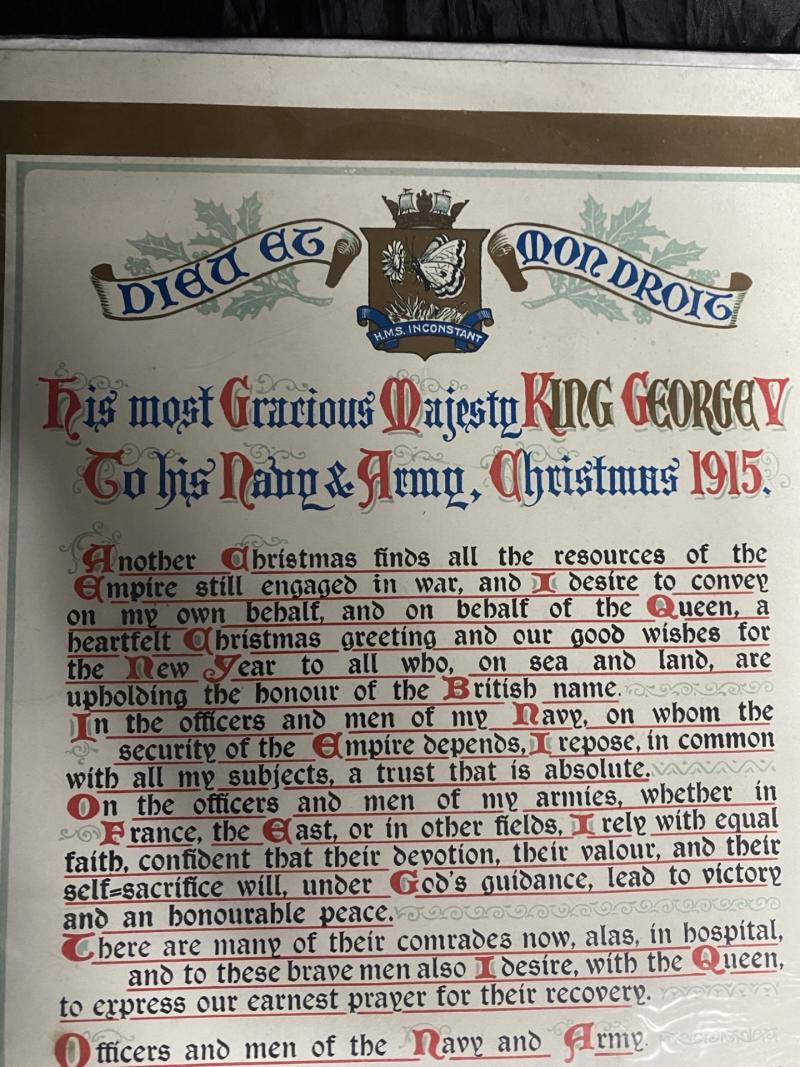 DIEU ET MON DROIT
H.M.S. INCONSTANT
His most Gracious Majesty KING GEORGE V
To his Navy & Army, Christmas 1915.
Another Christmas finds all the resources of the
Empire still engaged in war, and I desire to convey
on my own behalf, and on behalf of the Queen, a
heartfelt Christmas greeting and our good wishes for
the New Year to all who, on sea and land, are
upholding the honour of the British name.
In the officers and men of my Navy, on whom the
security of the Empire depends, I repose, in common
with all my subjects, a trust that is absolute.
On the officers and men of my armies, whether in
France, the East, or in other fields, I rely with equal
faith, confident that their devotion, their valour, and their
self=sacrifice will, under God's guidance, lead to victory
and an honourable peace.
There are many of their comrades now, alas, in hospital,
and to these brave men also I desire, with the Queen,
to express our earnest prayer for their recovery.
Officers and men of the Navy and Army.